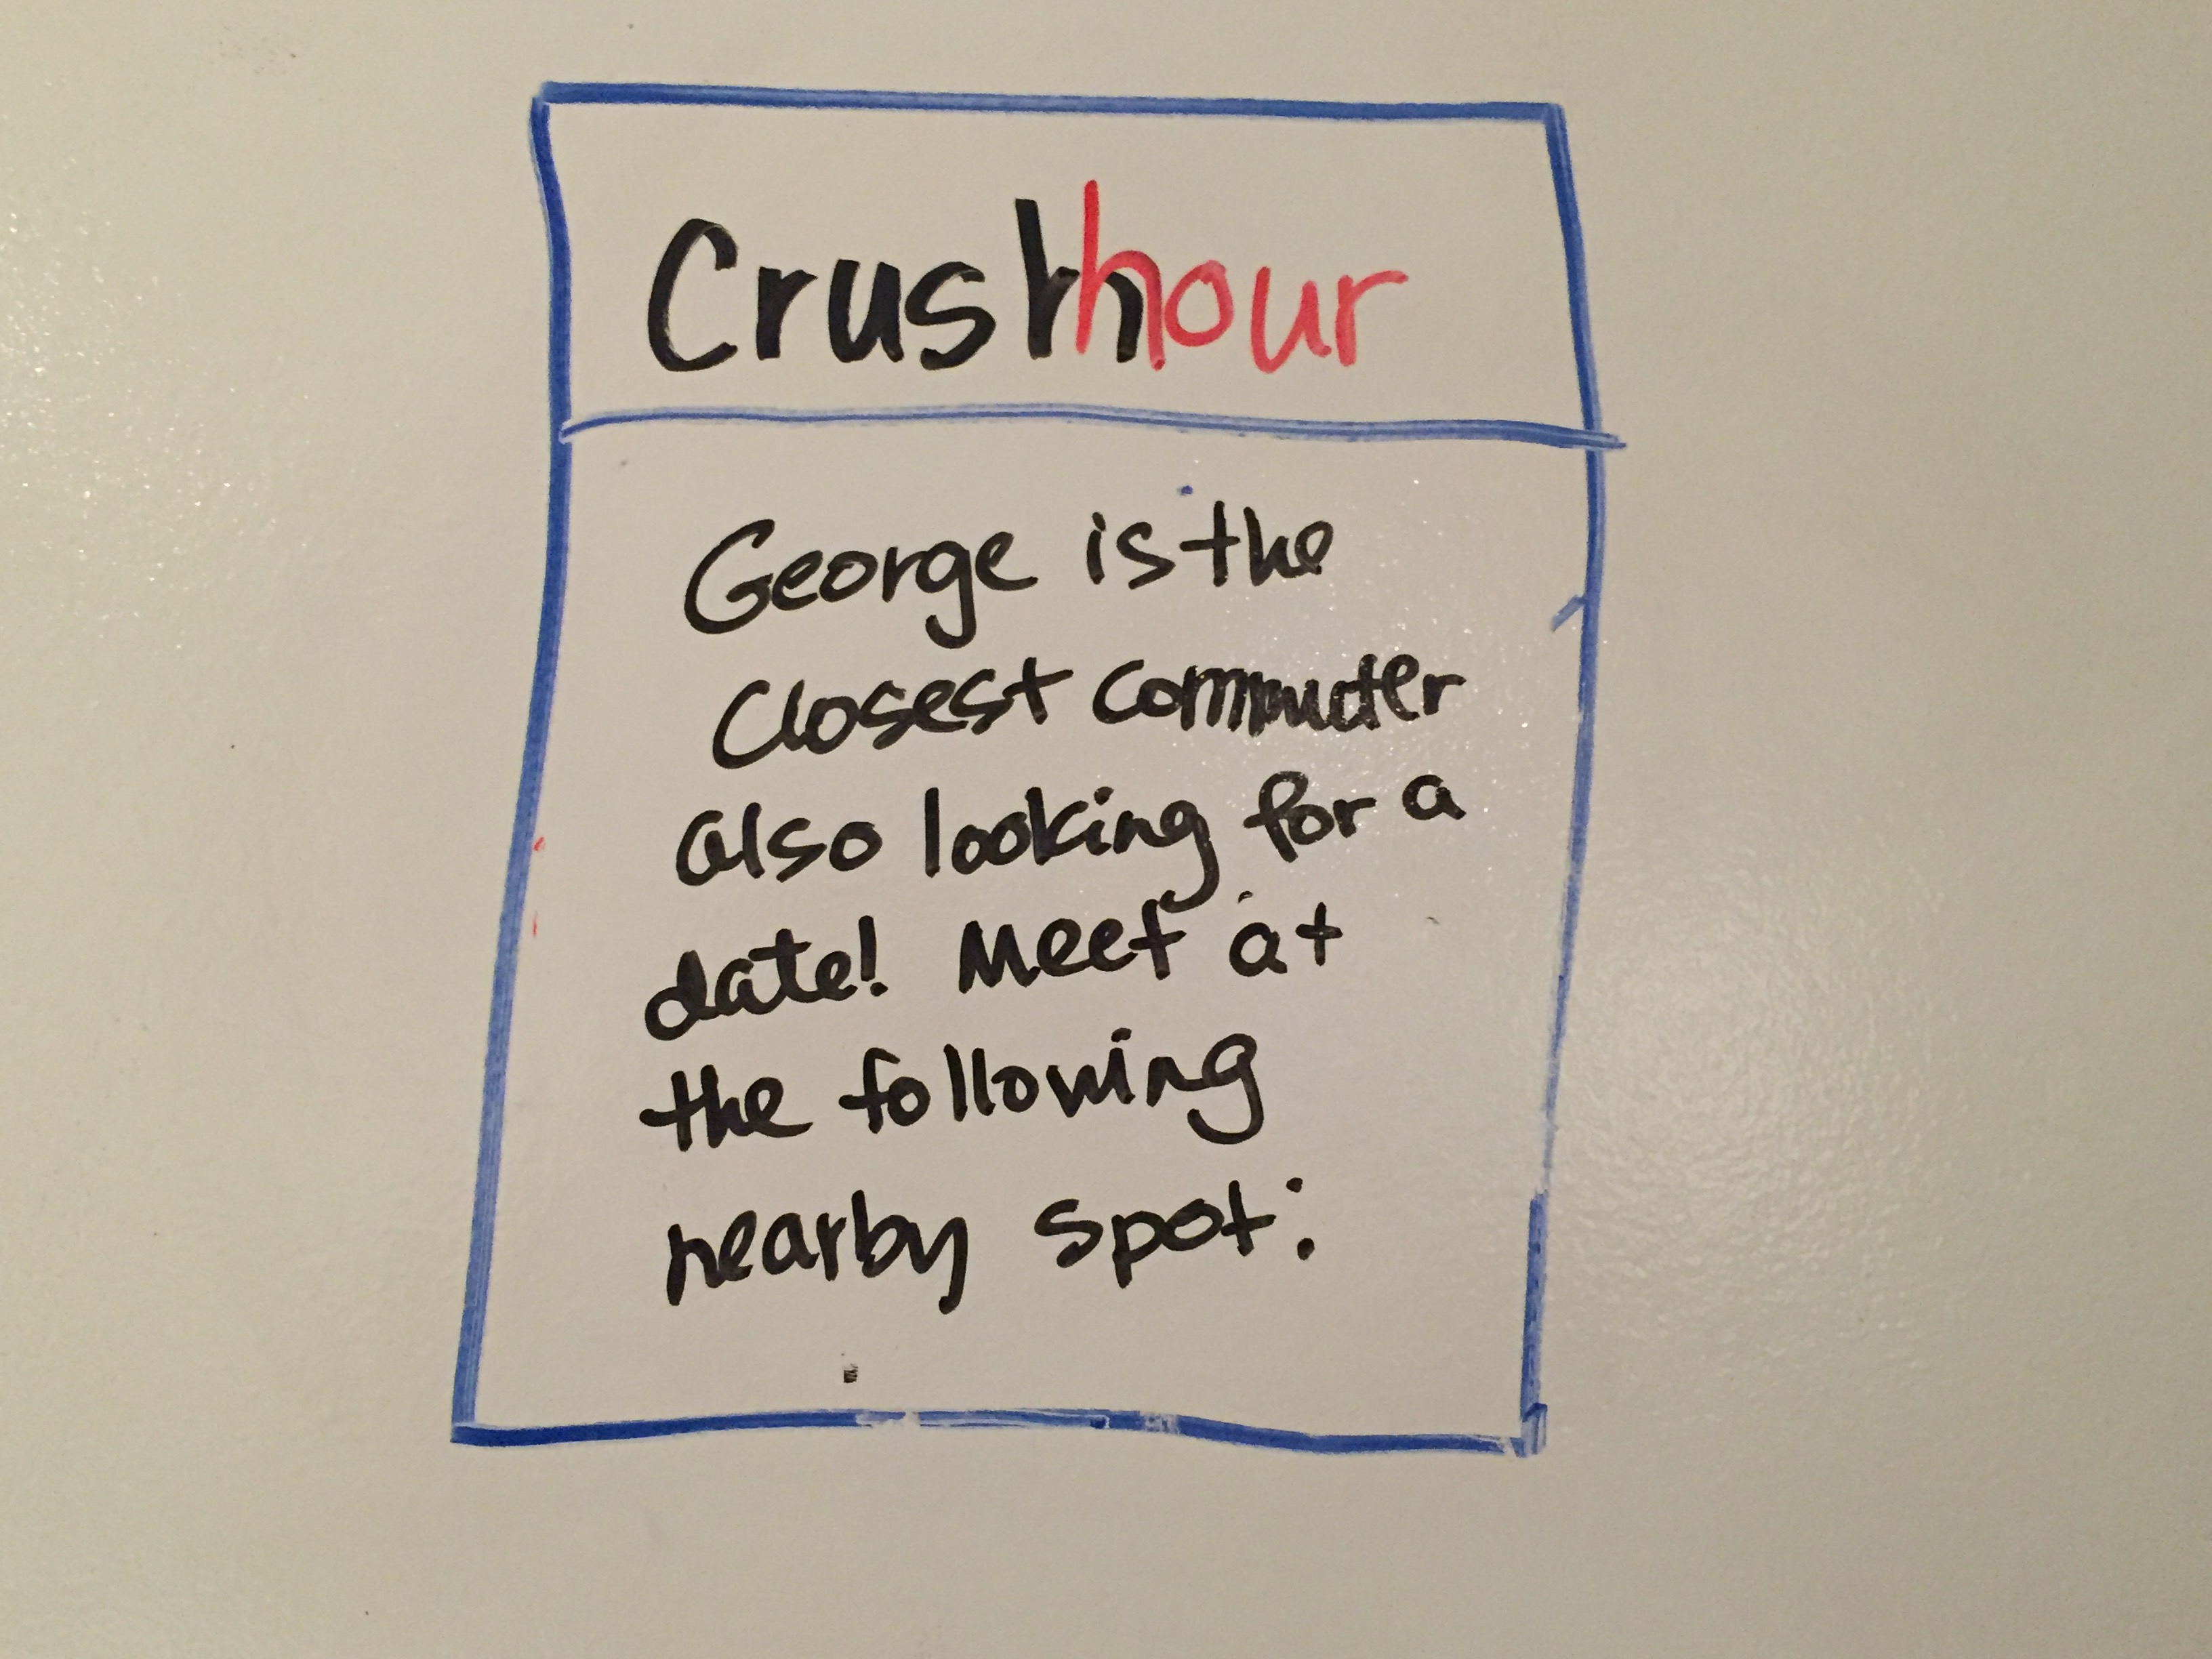 Crushhour
George is the
Closest commuter
also looking for a
date! Meet at
the following
nearby spot: